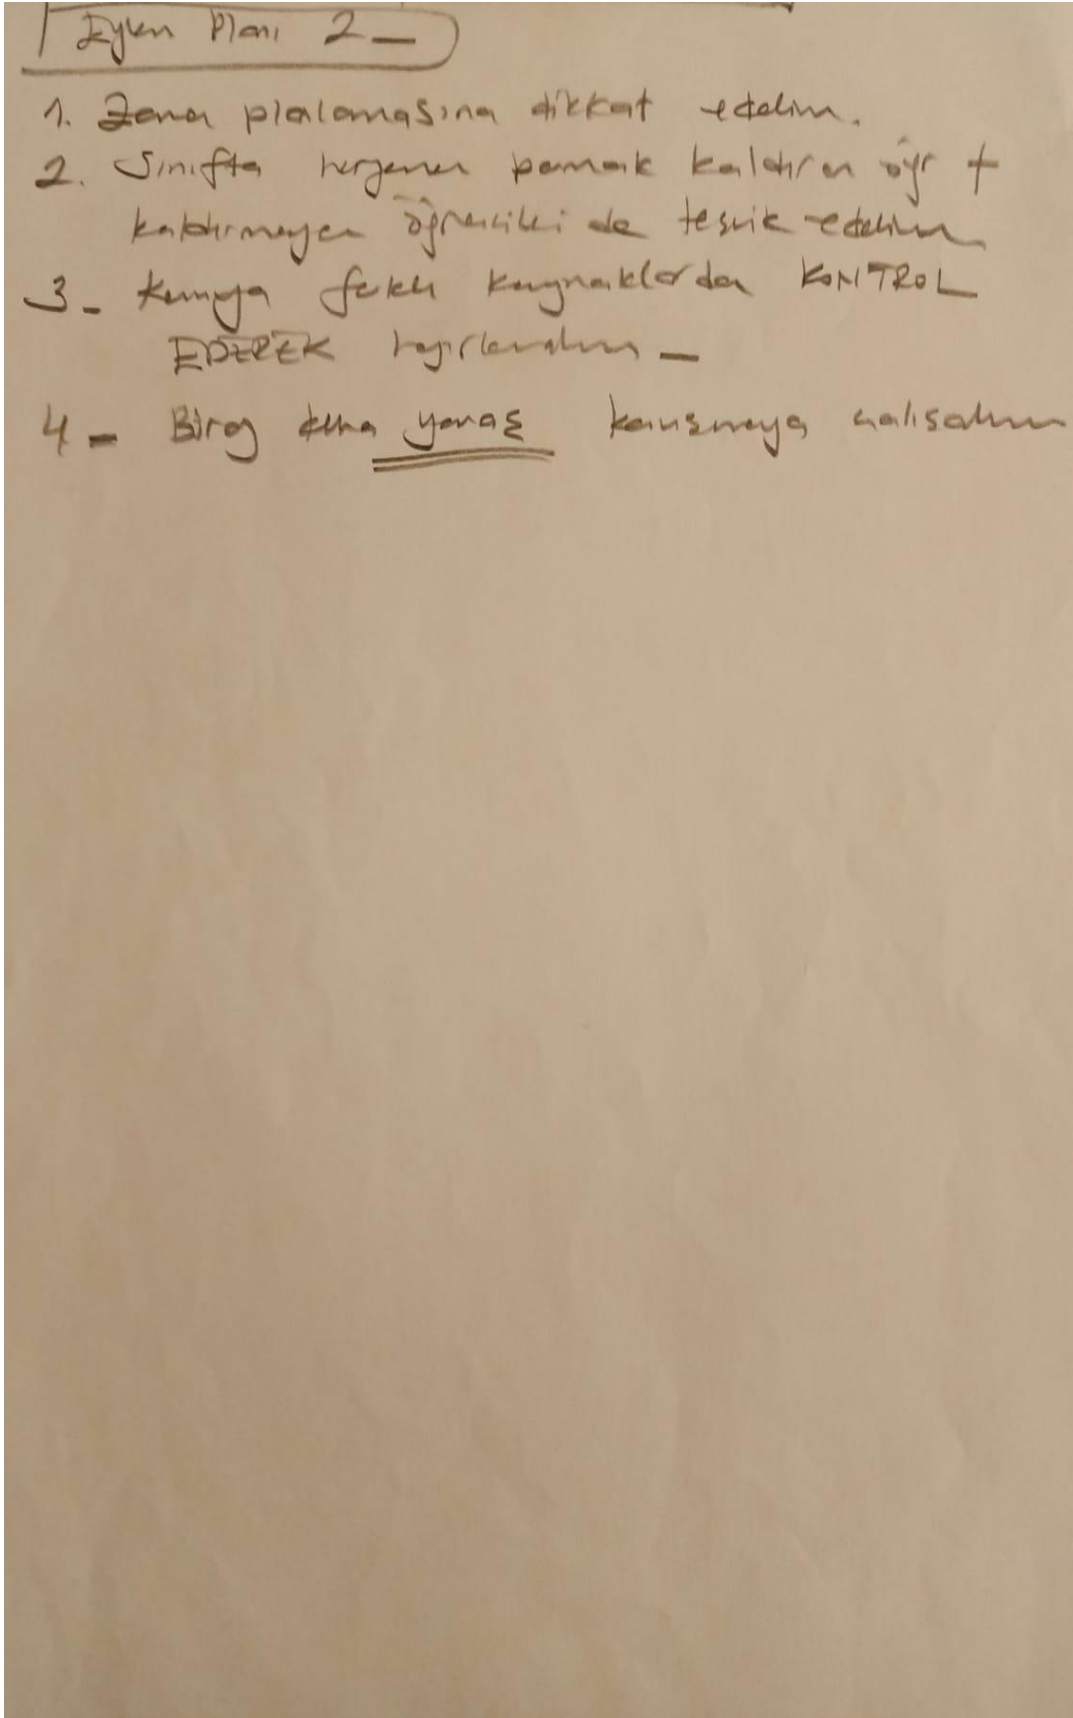 Eylem Planı 2 –
1. Zaman planlamasına dikkat edelim.
2. Sınıfta herzaman parmak kaldıran öğr +
kaldırmayan öğrencileri de teşvik edelim
3 – Konuya farklı kaynaklardan KONTROL
EDEREK hazırlanalım –
4 – Biraz daha yavaş konuşmaya çalışalım